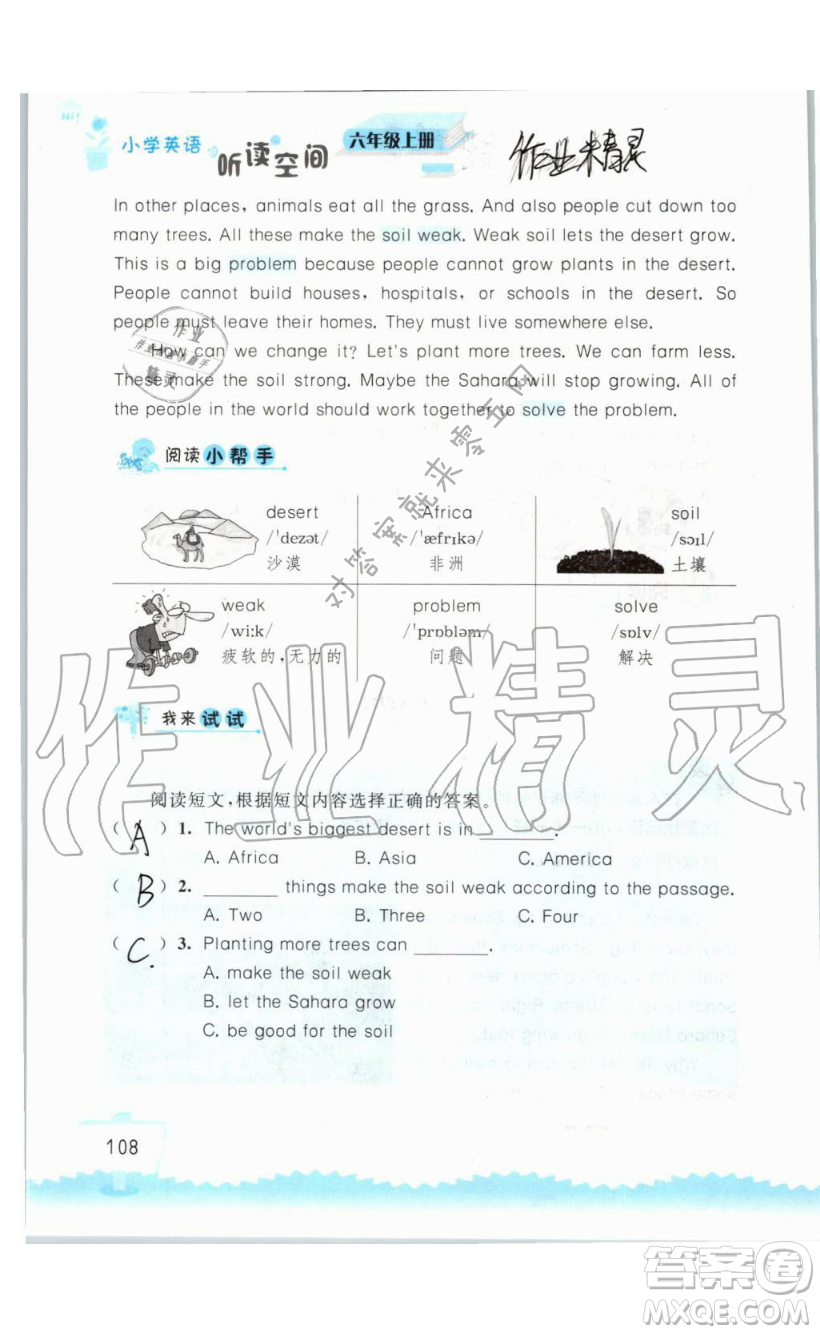 Hi!
小学英语 听读空间 六年级上册 作业精灵
In other places, animals eat all the grass. And also people cut down too
many trees. All these make the soil weak. Weak soil lets the desert grow.
This is a big problem because people cannot grow plants in the desert.
People cannot build houses, hospitals, or schools in the desert. So
people must leave their homes. They must live somewhere else.
How can we change it? Let's plant more trees. We can farm less.
These make the soil strong. Maybe the Sahara will stop growing. All of
the people in the world should work together to solve the problem.
作业
精灵
对答案就来零五网
阅读小帮手
desert Africa soil
/ˈdezət/ /ˈæfrɪkə/ /sɔɪl/
沙漠 非洲 土壤
weak problem solve
/wiːk/ /ˈprɒbləm/ /sɒlv/
疲软的,无力的 问题 解决
作业精灵
我来试试
阅读短文,根据短文内容选择正确的答案。
( A ) 1. The world's biggest desert is in ________.
A. Africa B. Asia C. America
( B ) 2. ________ things make the soil weak according to the passage.
A. Two B. Three C. Four
( C. ) 3. Planting more trees can ________.
A. make the soil weak
B. let the Sahara grow
C. be good for the soil
108
答案卷
MXQE.COM